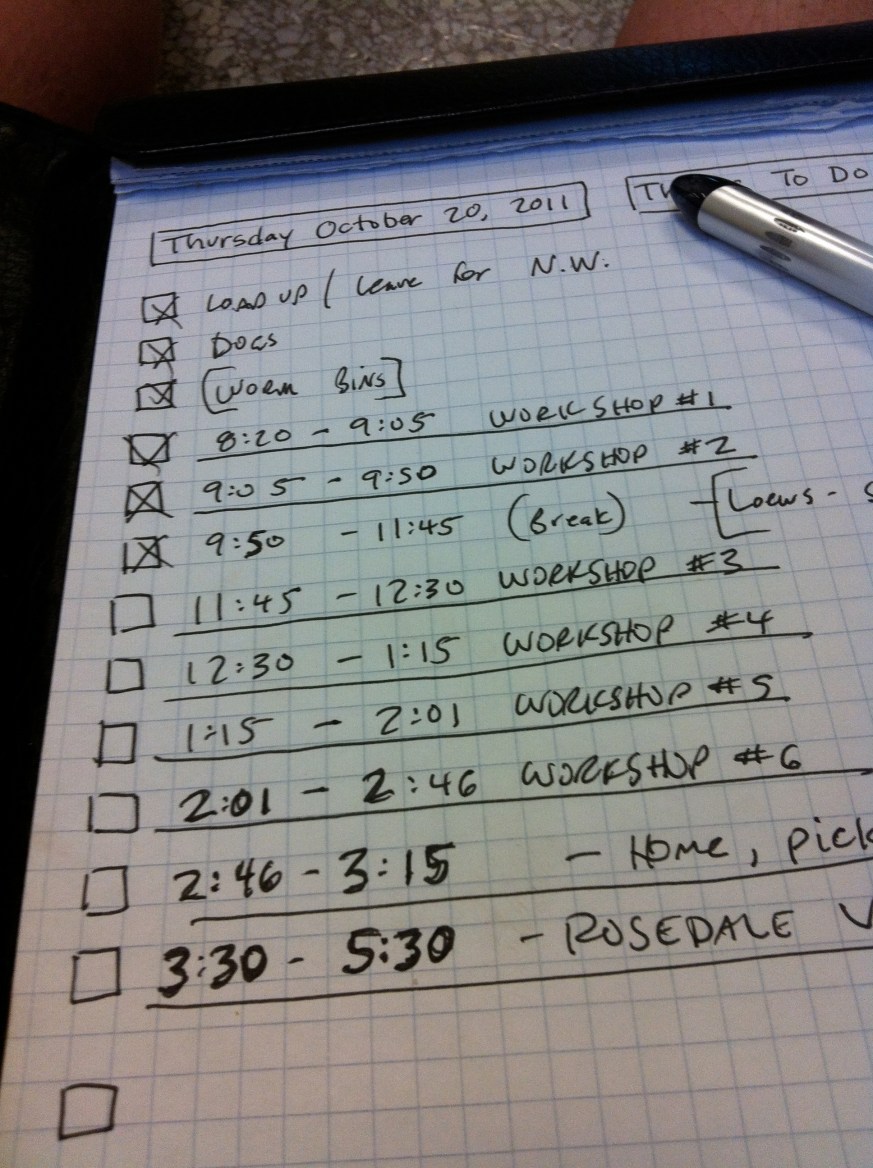 Thursday October 20, 2011
To Do
LOAD UP / Leave for N.W.
DOCS
[WORM BINS]
8:20 - 9:05 WORKSHOP #1
9:05 - 9:50 WORKSHOP #2
9:50 - 11:45 (Break) - [Loews -
11:45 - 12:30 WORKSHOP #3
12:30 - 1:15 WORKSHOP #4
1:15 - 2:01 WORKSHOP #5
2:01 - 2:46 WORKSHOP #6
2:46 - 3:15 - HOME, PICK
3:30 - 5:30 - ROSEDALE